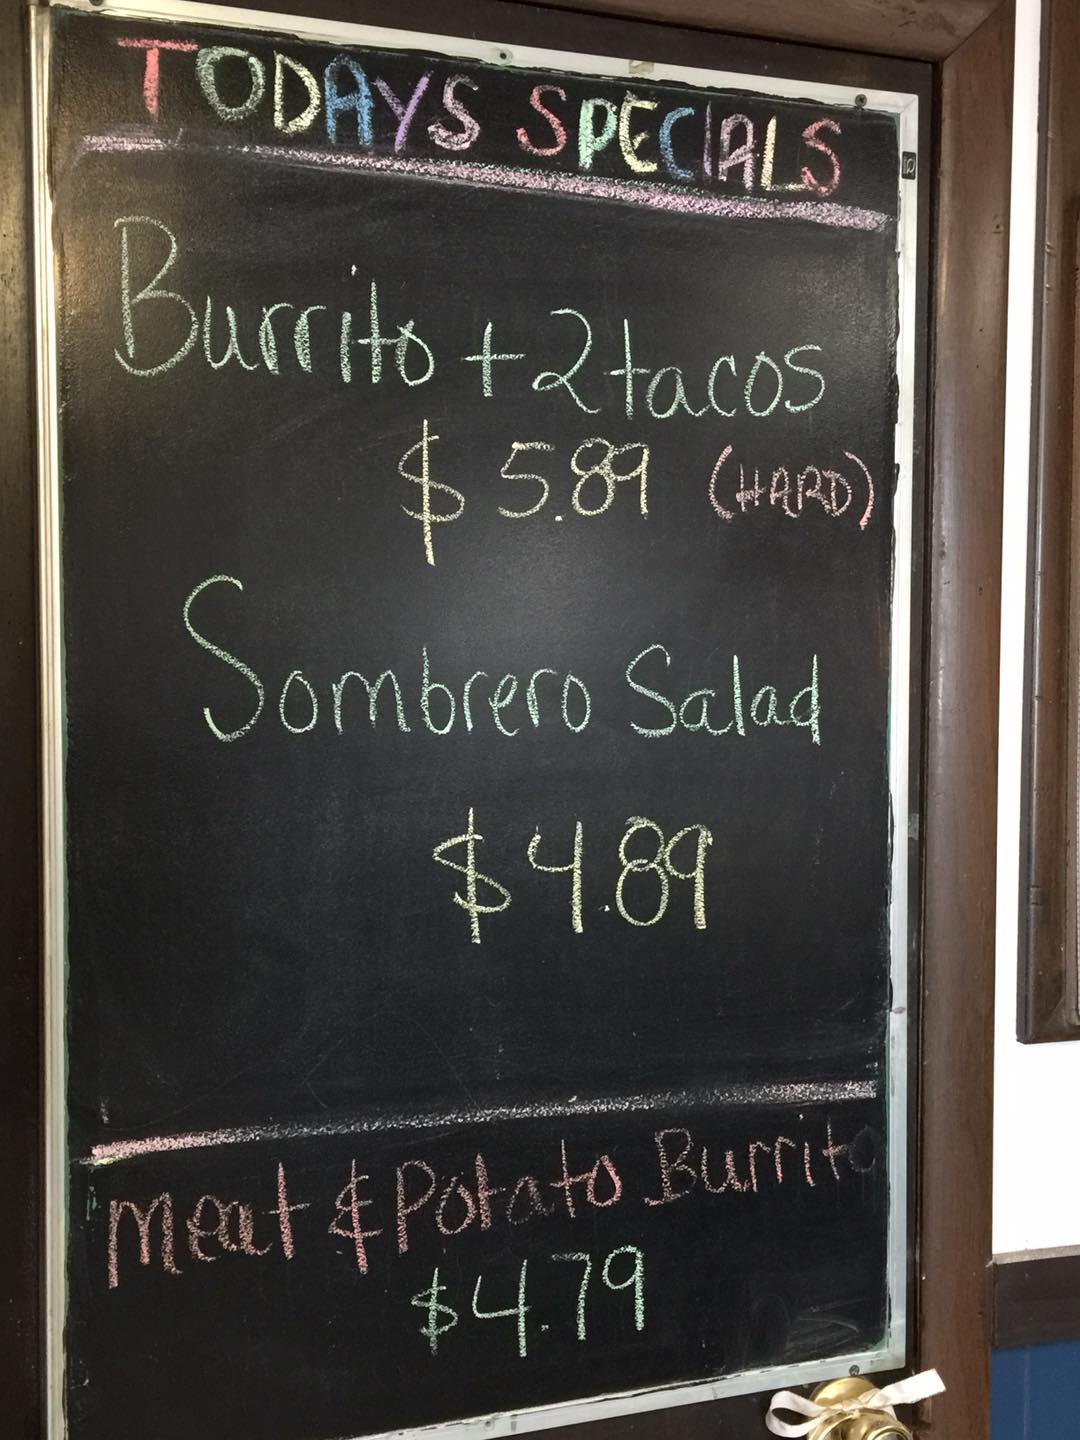 TODAYS SPECIALS
Burrito + 2 tacos
$ 5.89 (HARD)
Sombrero Salad
$ 4.89
Meat & Potato Burrito
$4.79